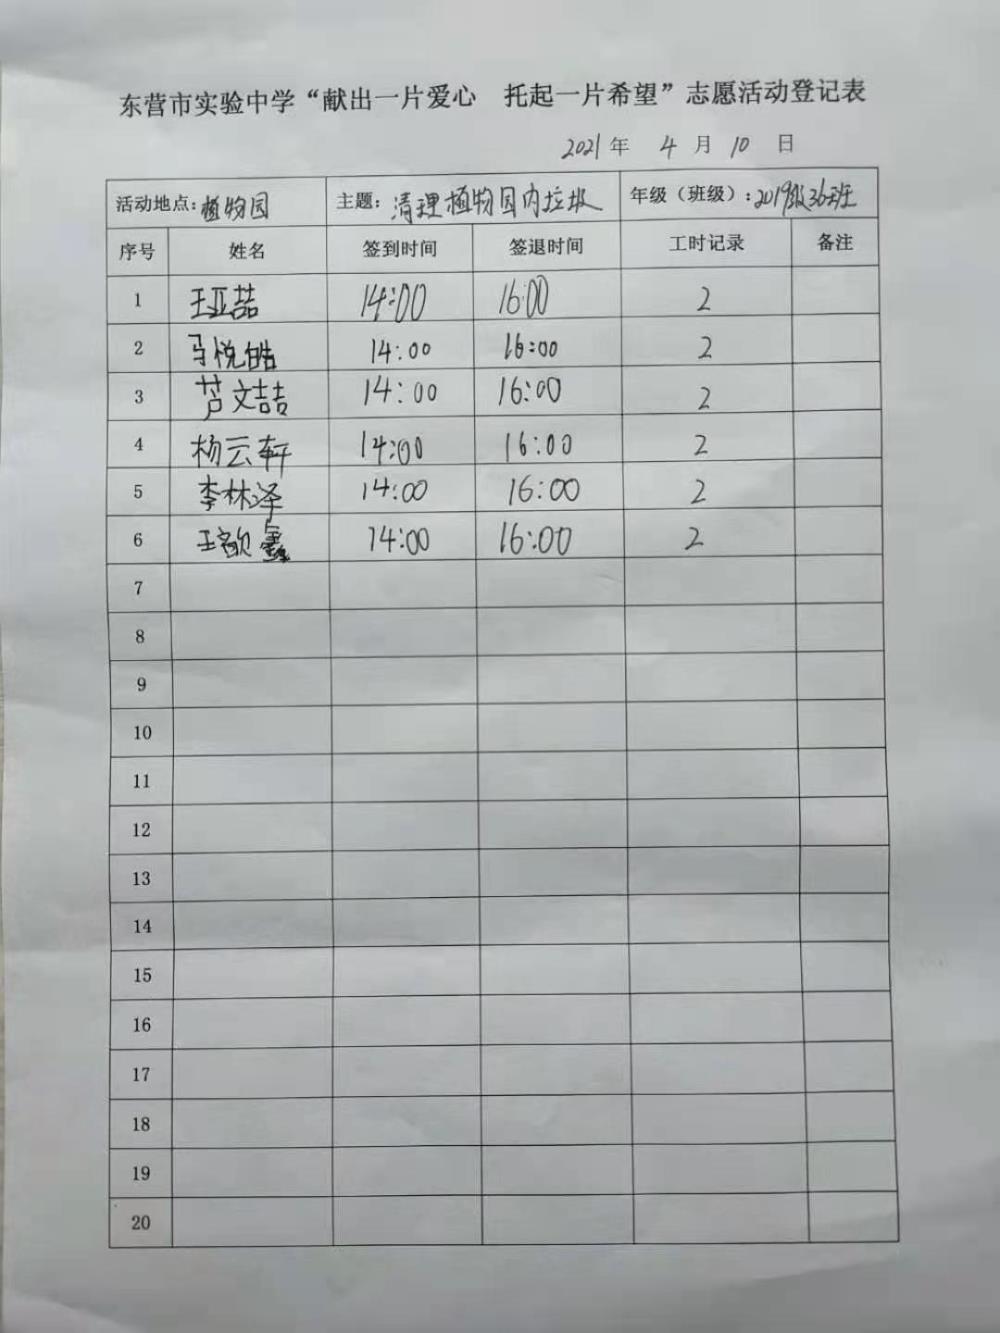 东营市实验中学“献出一片爱心 托起一片希望”志愿活动登记表
2021年 4 月 10 日
活动地点:植物园 主题:清理植物园内垃圾 年级(班级):2019级36班
序号 姓名 签到时间 签退时间 工时记录 备注
1 王亚喆 14:00 16:00 2
2 马悦皓 14:00 16:00 2
3 芦文喆 14:00 16:00 2
4 杨云轩 14:00 16:00 2
5 李林泽 14:00 16:00 2
6 王歆鑫 14:00 16:00 2
7
8
9
10
11
12
13
14
15
16
17
18
19
20